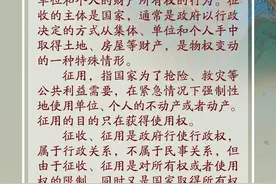 单位和个人的财产所有权的行为。征
收的主体是国家，通常是政府以行政
决定的方式从集体、单位和个人手中
取得土地、房屋等财产，是物权变动
的一种特殊情形。
征用，指国家为了抢险、救灾等
公共利益需要，在紧急情况下强制性
地使用单位、个人的不动产或者动产。
征用的目的只在获得使用权。
征收、征用是政府行使行政权，
属于行政关系，不属于民事关系，但
由于征收、征用是对所有权或者使用
权的限制，同时又是国家取得所有权